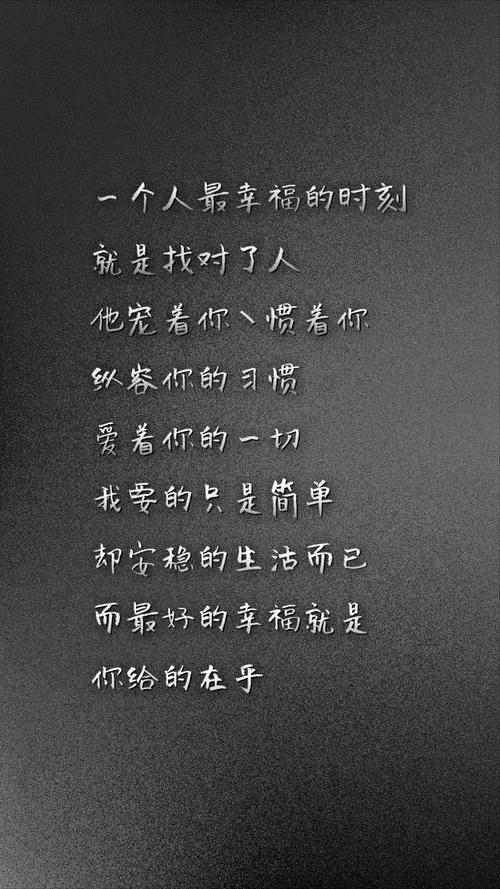 一个人最幸福的时刻
就是找对了人
他宠着你丶惯着你
纵容你的习惯
爱着你的一切
我要的只是简单
却安稳的生活而已
而最好的幸福就是
你给的在乎